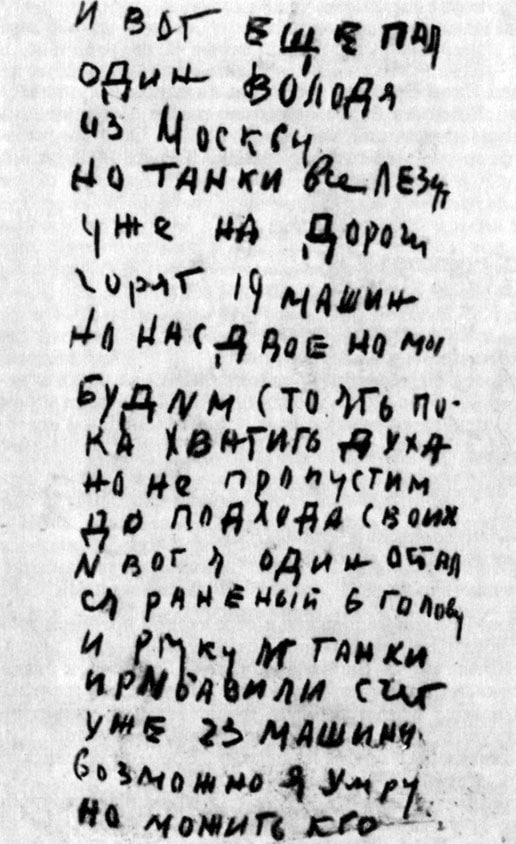 И ВОТ ЕЩЕ ПАЛ
ОДИН ВОЛОДЯ
ИЗ МОСКВЫ
НО ТАНКИ ВСЕ ЛЕЗУТ
УЖЕ НА ДОРОГИ
ГОРЯТ 19 МАШИН
НО НАС ДВОЕ НО МЫ
БУДИМ СТОЯТЬ ПО-
КА ХВАТИТЬ ДУХА
НО НЕ ПРОПУСТИМ
ДО ПОДХОДА СВОИХ
И ВОТ Я ОДИН ОСТАЛ
СЯ РАНЕНЫЙ В ГОЛОВУ
И РУКУ И ТАНКИ
ПРИБАВИЛИ СЧЕТ
УЖЕ 23 МАШИНЫ.
ВОЗМОЖНО Я УМРУ
НО МОЖИТЬ КТО